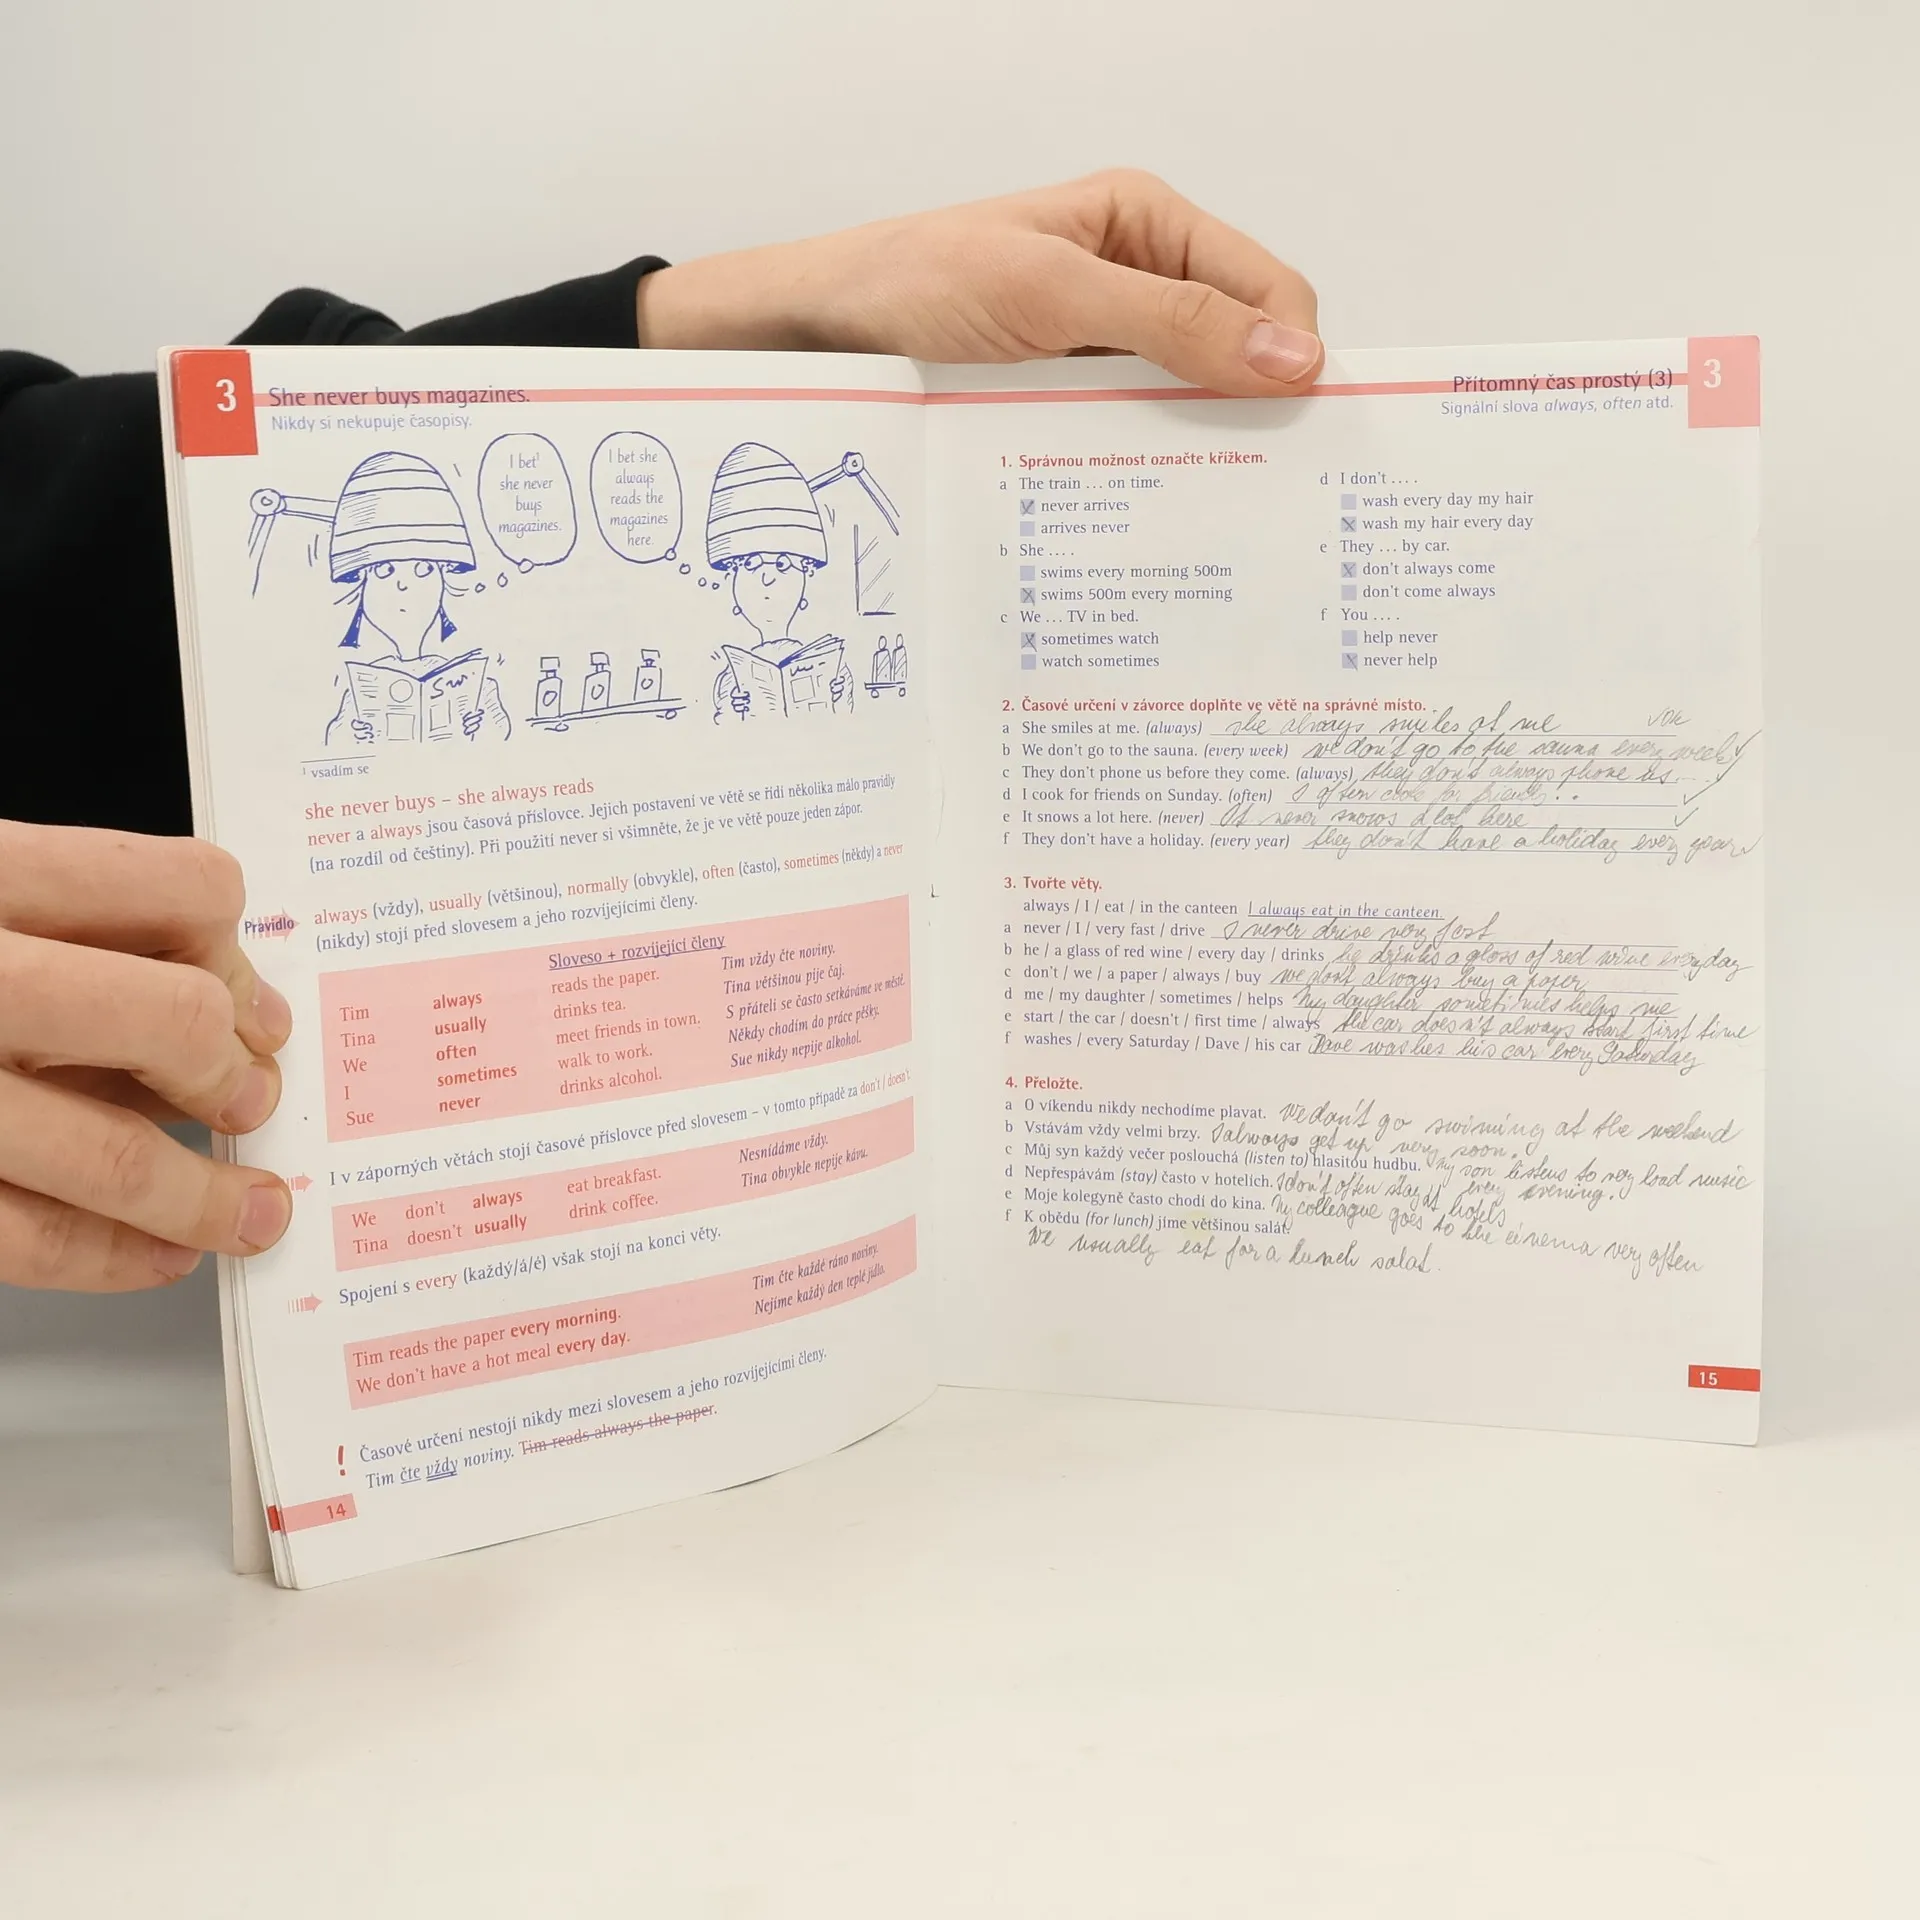 3
She never buys magazines.
Nikdy si nekupuje časopisy.
I bet¹
she never
buys
magazines.
I bet she
always
reads the
magazines
here.
¹ vsadím se
she never buys – she always reads
never a always jsou časová příslovce. Jejich postavení ve větě se řídí několika málo pravidly
(na rozdíl od češtiny). Při použití never si všimněte, že je ve větě pouze jeden zápor.
Pravidlo
always (vždy), usually (většinou), normally (obvykle), often (často), sometimes (někdy) a never
(nikdy) stojí před slovesem a jeho rozvíjejícími členy.
Sloveso + rozvíjející členy
Tim always reads the paper. Tim vždy čte noviny.
Tina usually drinks tea. Tina většinou pije čaj.
We often meet friends in town. S přáteli se často setkáváme ve městě.
I sometimes walk to work. Někdy chodím do práce pěšky.
Sue never drinks alcohol. Sue nikdy nepije alkohol.
I v záporných větách stojí časové příslovce před slovesem – v tomto případě za don't / doesn't.
We don't always eat breakfast. Nesnídáme vždy.
Tina doesn't usually drink coffee. Tina obvykle nepije kávu.
Spojení s every (každý/á/é) však stojí na konci věty.
Tim reads the paper every morning. Tim čte každé ráno noviny.
We don't have a hot meal every day. Nejíme každý den teplé jídlo.
! Časové určení nestojí nikdy mezi slovesem a jeho rozvíjejícími členy.
Tim čte vždy noviny. Tim reads always the paper.
14
Přítomný čas prostý (3)
3
Signální slova always, often atd.
1. Správnou možnost označte křížkem.
a The train ... on time.
never arrives
arrives never
b She ....
swims every morning 500m
swims 500m every morning
c We ... TV in bed.
sometimes watch
watch sometimes
d I don't ....
wash every day my hair
wash my hair every day
e They ... by car.
don't always come
don't come always
f You ....
help never
never help
2. Časové určení v závorce doplňte ve větě na správné místo.
a She smiles at me. (always) she always smiles at me ✓OK
b We don't go to the sauna. (every week) we don't go to the sauna every week ✓
c They don't phone us before they come. (always) they don't always phone us... ✓
d I cook for friends on Sunday. (often) I often cook for friends.. ✓
e It snows a lot here. (never) It never snows a lot here ✓
f They don't have a holiday. (every year) they don't have a holiday every year ✓
3. Tvořte věty.
always / I / eat / in the canteen I always eat in the canteen.
a never / I / very fast / drive I never drive very fast
b he / a glass of red wine / every day / drinks he drinks a glass of red wine every day
c don't / we / a paper / always / buy we dont always buy a paper
d me / my daughter / sometimes / helps My daughter sometimes helps me
e start / the car / doesn't / first time / always the car doesn't always start first time
f washes / every Saturday / Dave / his car Dave washes his car every Saturday
4. Přeložte.
a O víkendu nikdy nechodíme plavat. We don't go swiming at the weekend
b Vstávám vždy velmi brzy. I always get up very soon.
c Můj syn každý večer poslouchá (listen to) hlasitou hudbu. My son listens to very load music
every evening.
d Nepřespávám (stay) často v hotelích. I don't often stay at hotels
e Moje kolegyně často chodí do kina. My colleague goes to the cinema very often
f K obědu (for lunch) jíme většinou salát.
We usually eat for a lunch salad.
15